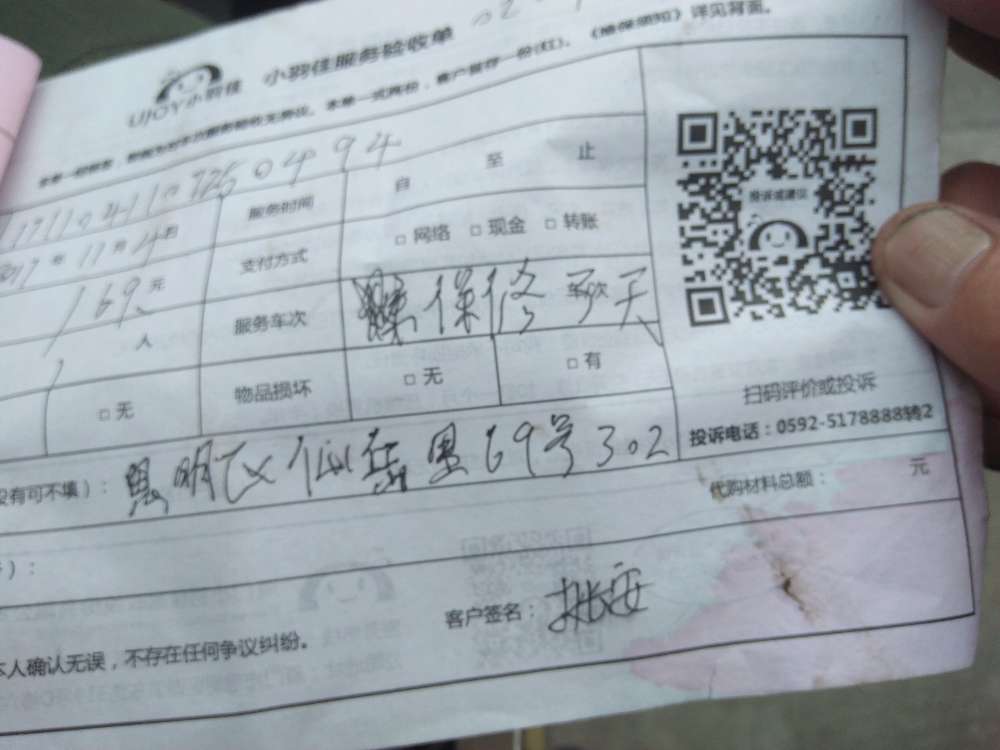 UJOY小羽佳 小羽佳服务验收单
本单一式两份，客户留存一份(红)。《维保须知》详见背面。
17110411092504 94
服务时间 自 至 止
2017年11月4日 支付方式 □ 网络 □ 现金 □ 转账
169元
人 服务车次 保修 天
□ 无 物品损坏 □ 无 □ 有
投诉或建议
扫码评价或投诉
投诉电话：0592-5178888转2
没有可不填）： 思明区仙岳里69号302
代购材料总额： 元
）：
客户签名： 姚安
本人确认无误，不存在任何争议纠纷。